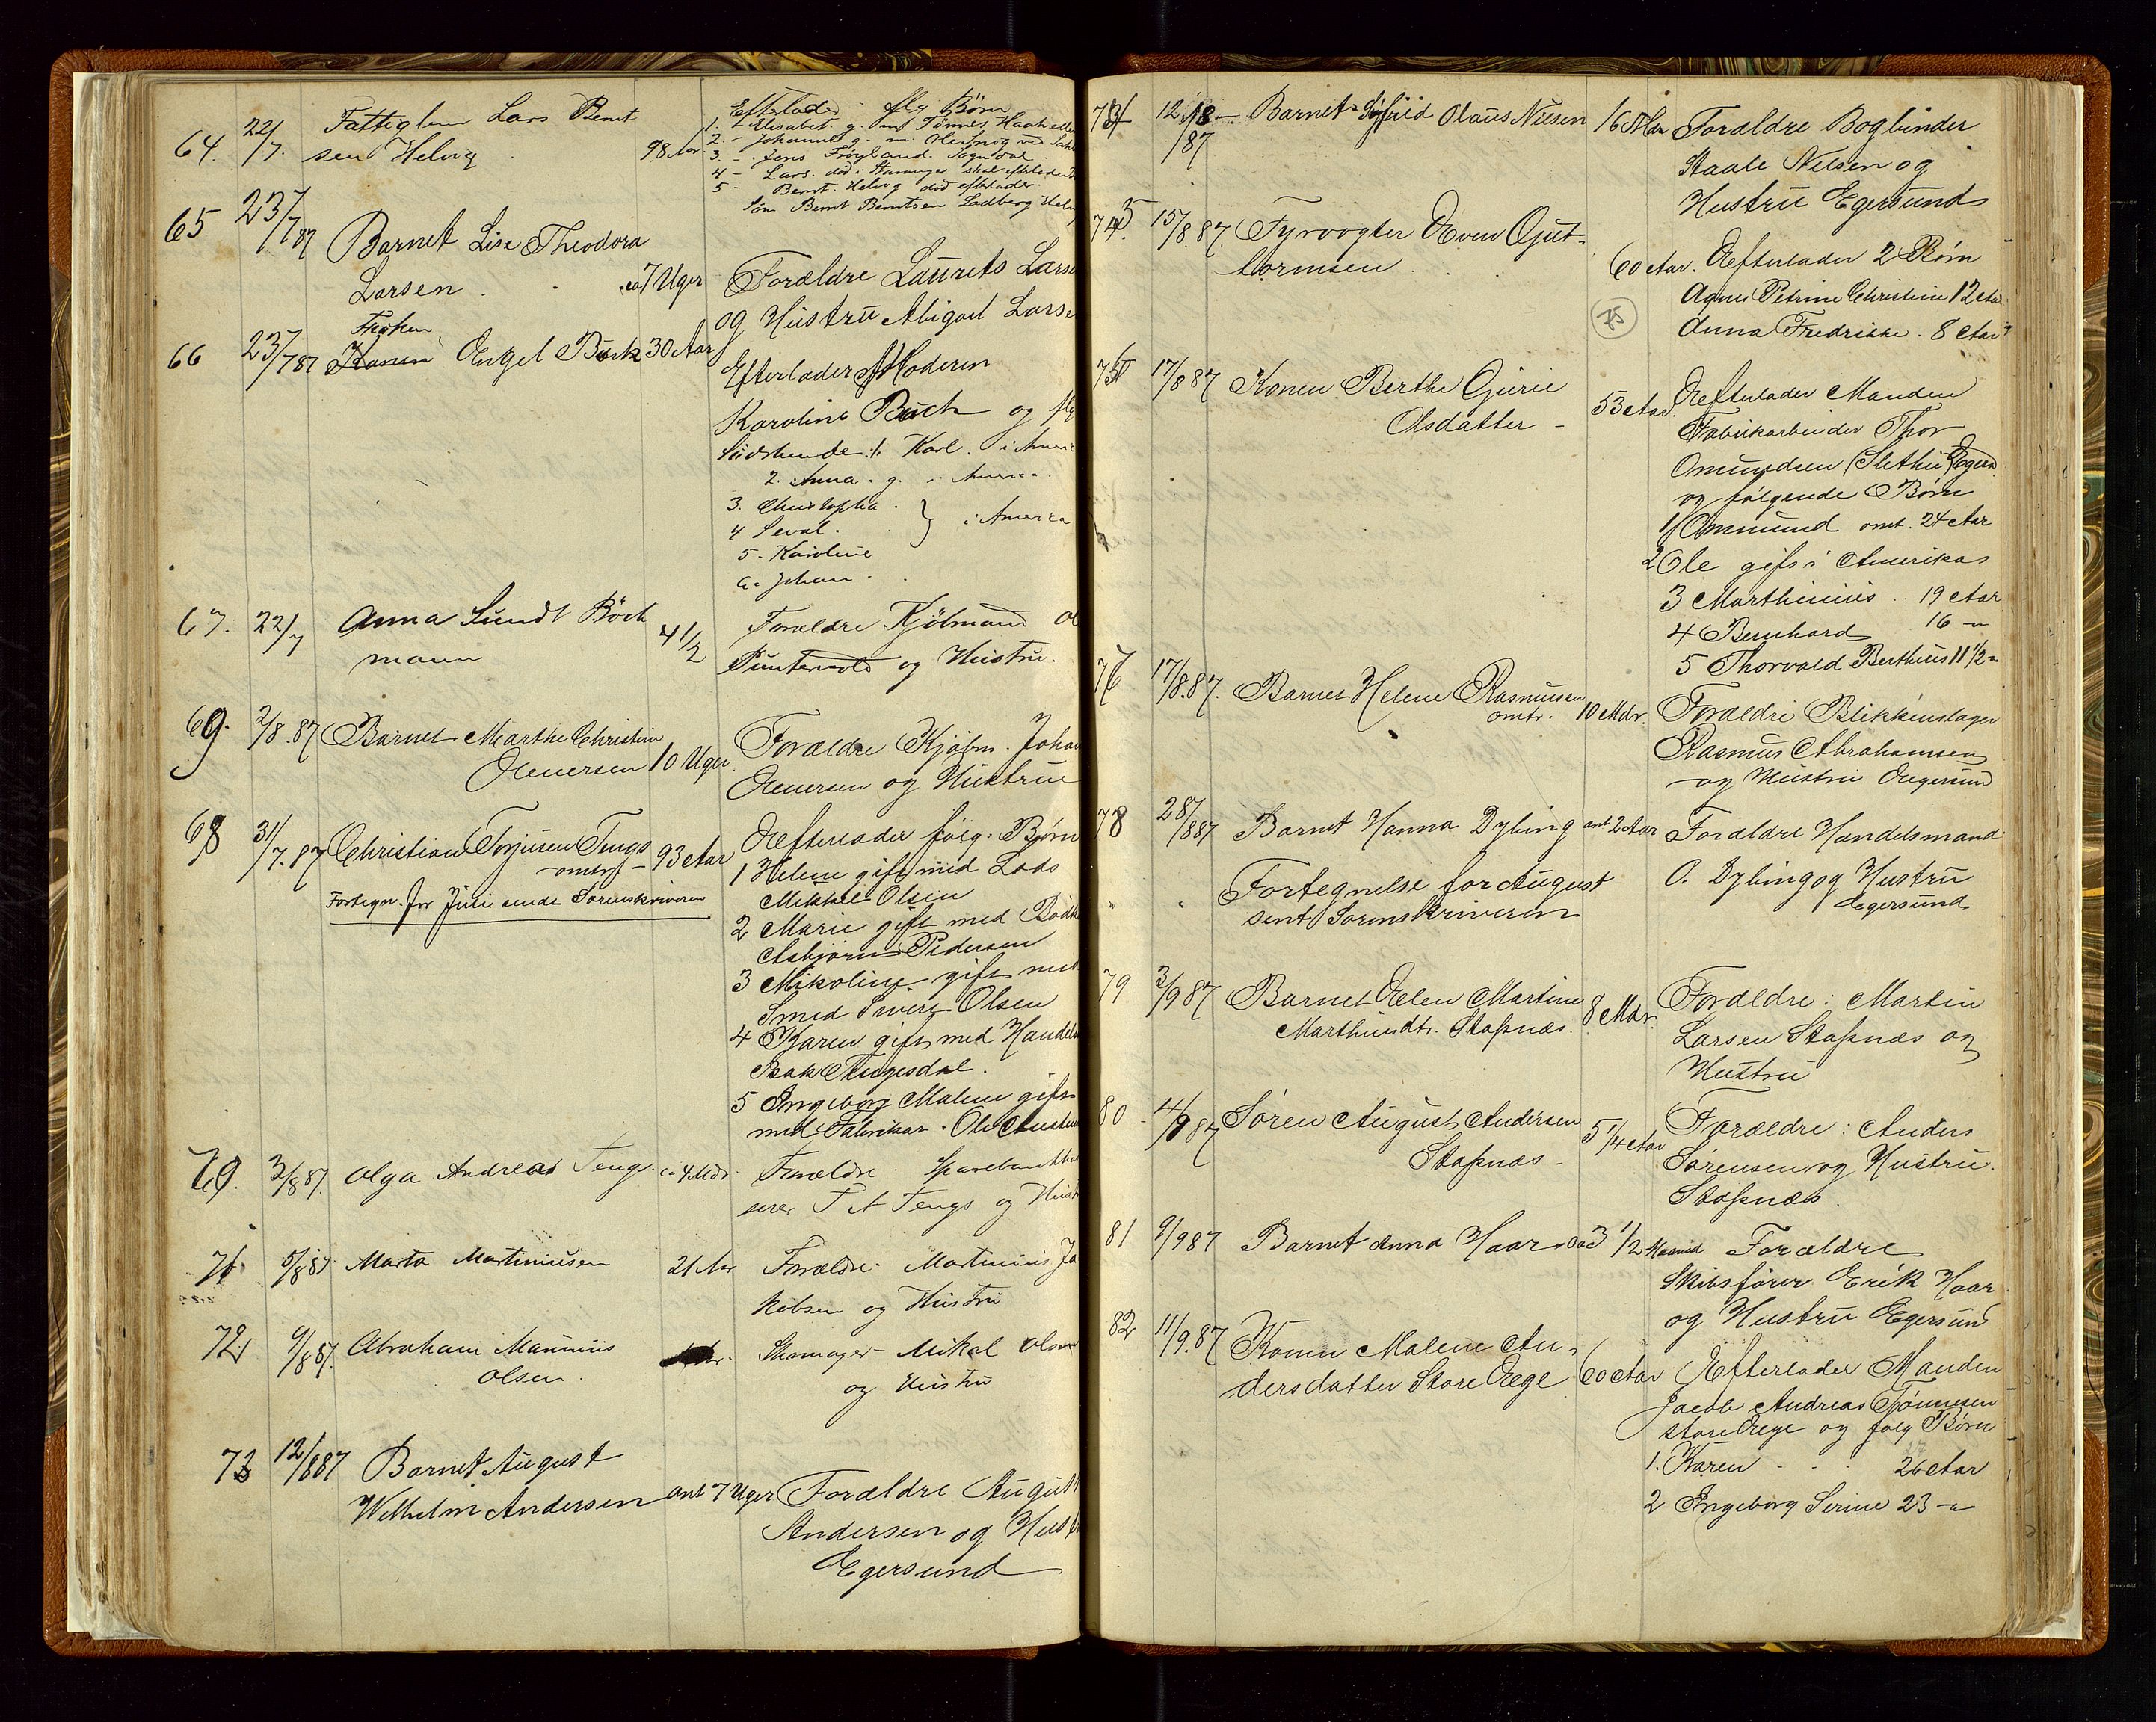 64. 22/7. Fattiglem Lars Bernt
sen Helvig 98 Aar.
Efterlader flg Børn
1. Elisabet g. m Tønnes
2. - Johannes g. m.
3. - Jens Frøyland. Sogndal
4 - Lars. død i Stavanger
5 - Bernt. Helvig død efterlader
Søn Bernt Berntsen Ladberg
65 23/7 87 Barnet Lise Theodora
Larsen . ca 7 Uger
Forældre Laurets Larse
og Hustru Abigael Larse
66 23/7 87 Frøken
Engel Buch 30 Aar
Efterlader Moderen
Karoline Buch og flg
Sødskende: 1. Karl. i Amer
2. Anna. g. i Amer
3. Christopha .
4 Seval . } i Amerika
5. Karoline
6. Johan .
67. 22/7 Anna Sundt Böck
mann 4 1/2
Forældre Kjöbmand
og Hustru.
69. 2/8.87 Barnet Marthe Christine
10 Uger.
Forældre Kjøbm. Joha
og Hustrue
68 31/7.87 Christian Torjusen Tengs
omtr - 93 Aar
Fortegn. for Juli sendt Sorenskriveren
Efterlader følg: Børn
1 Helene gift med Lods
Mikkel Olsen
2 Marie gift med Bødk
Asbjørn Pedersen
3 Mikoline gift med
Smed Sivert Olsen
4 Karen gift med Handels
Isak Tengesdal.
5 Ingeborg Malene gift
med Fabrikar. Ole
70. 3/8 87. Olga Andrea Tengs. ca 4 Mdr.
Forældre Sparebankkas
serer T A Tengs og Hust
71. 5/8 87 Marta Martiniusen 21 Aar
Forældre Martinius Ja
kobsen og Hustru
72. 9/8 87. Abraham Maurius
Olsen.
Skomager Mikal Olsen
og Hustru
73 12/8 87 Barnet August
Wilhelm Andersen omt 7 Uger
Forældre August
Andersen og Hustr
Egersund
74 12/8 - Barnet Sigfrid Olaus Nilsen 16 Mdr
/87
Forældre Bogbinder
Staale Nilsen og
Hustru Egersund
75. 15/8.87. Fyrvogter Even Gut-
tormsen . 60 Aar.
(75)
Efterlader 2 Børn
Agnes Petrine Christine 12 Aar
Anna Fredrikke. 8 Aar
17/8 87 Konen Berthe Gurie
Olsdatter - 53 Aar.
Efterlader Manden
Fabrikarbeider Thor
Omundsen (Slethei) Egers.
og følgende Børn
1 Ommund omt. 24 Aar
2 Ole gift i Amerika
3 Marthinius .. 19 Aar
4 Bernhard 16 -"
5 Thorvald Berthius 11 1/2 -"
17/8.87. Barnet Helene Rasmusen
omtr. 10 Mdr.
Forældre Blikkenslager
Rasmus Abrahamsen
og Hustru Egersund
78 28/8 87 Barnet Hanna Dybing omt 2 Aar
Forældre Handelsmand
O. Dybing og Hustru
Egersund
Fortegnelse for August
sent Sorenskriveren
79 3/9 87 Barnet Elen Martine
Marthinsdtr. Stapnæs. 8 Mdr.
Forældre: Martin
Larsen Stapnæs og
Hustru
80 4/9 87 Søren August Andersen
Stapnæs - 5 1/4 Aar
Forældre: Anders
Sørensen og Hustru.
Stapnæs.
81 9/9 87 Barnet Anna Haar 3 1/2 Maaned
Forældre
Skibsfører Erik Haar
og Hustru Egersund
82 11/9.87 Konen Malene An-
dersdatter Store Eege 60 Aar
Efterlader Manden
Jacob Andreas Tønnesen
store Eege og følg Børn
1. Karen . . . 26 Aar
2 Ingeborg Serine 23 -"